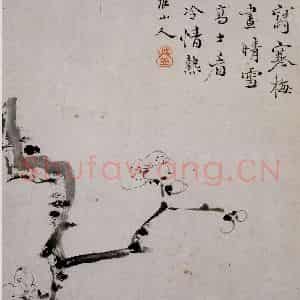 寫寒梅
畫晴雪
高士看
冷情熱
山人
Shufawang.CN